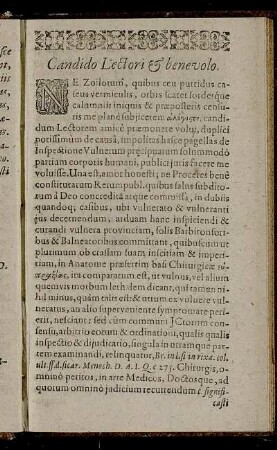 Candido Lectori & benevolo.
NE Zoilorum, quibus ceu putridus ca-
seus vermiculis, orbis scatet sordesque
calumniis iniquis & præposteris censu-
ris me planè subjicerem candi-
dum Lectorem amicè præmonere volui, duplici
potissimùm de causa, impolitas hasce pagellas de
Inspectione Vulnerum præcipuarum solummodò
partium corporis humani, publici juris facere me
voluisse. Una est, amor honesti; ne Proceres benè
constitutarum Rerumpubl. quibus salus subdito-
rum à Deo concredita atque commissa, in dubiis
quandoq; casibus, ubi vulnerato & vulneranti
jus decernendum, arduam hanc inspiciendi &
curandi vulnera provinciam, solis Barbitonsori-
bus & Balneatoribus committant, quibuscum ut
plurimum ob crassam suam, inscitiam & imperi-
tiam, in Anatome præsertim basi Chirurgiæ
ita comparatum est, ut vulnus, vel alium
quemvis morbum lethalem dicant, quàm tamen ni-
hil minus, quàm talis est: & utrum ex vulnere vul-
neratus, an alio superveniente symptomate peri-
erit, nesciant: sed cùm communi JCtorum con-
sensu, arbitrio eorum & ordinationi, qualis qualis
inspectio & dijudicatio, singula in utramque par-
tem examinandi, relinquatur, Br. in l. si in rixa. col.
ult. ff. d. sicar. Menoch. D. A. I. Q. c 275. Chirurgis, o-
mninò peritos, in arte Medicos, Doctosque, ad
quorum omninò judicium recurrendum è signifi-
casti